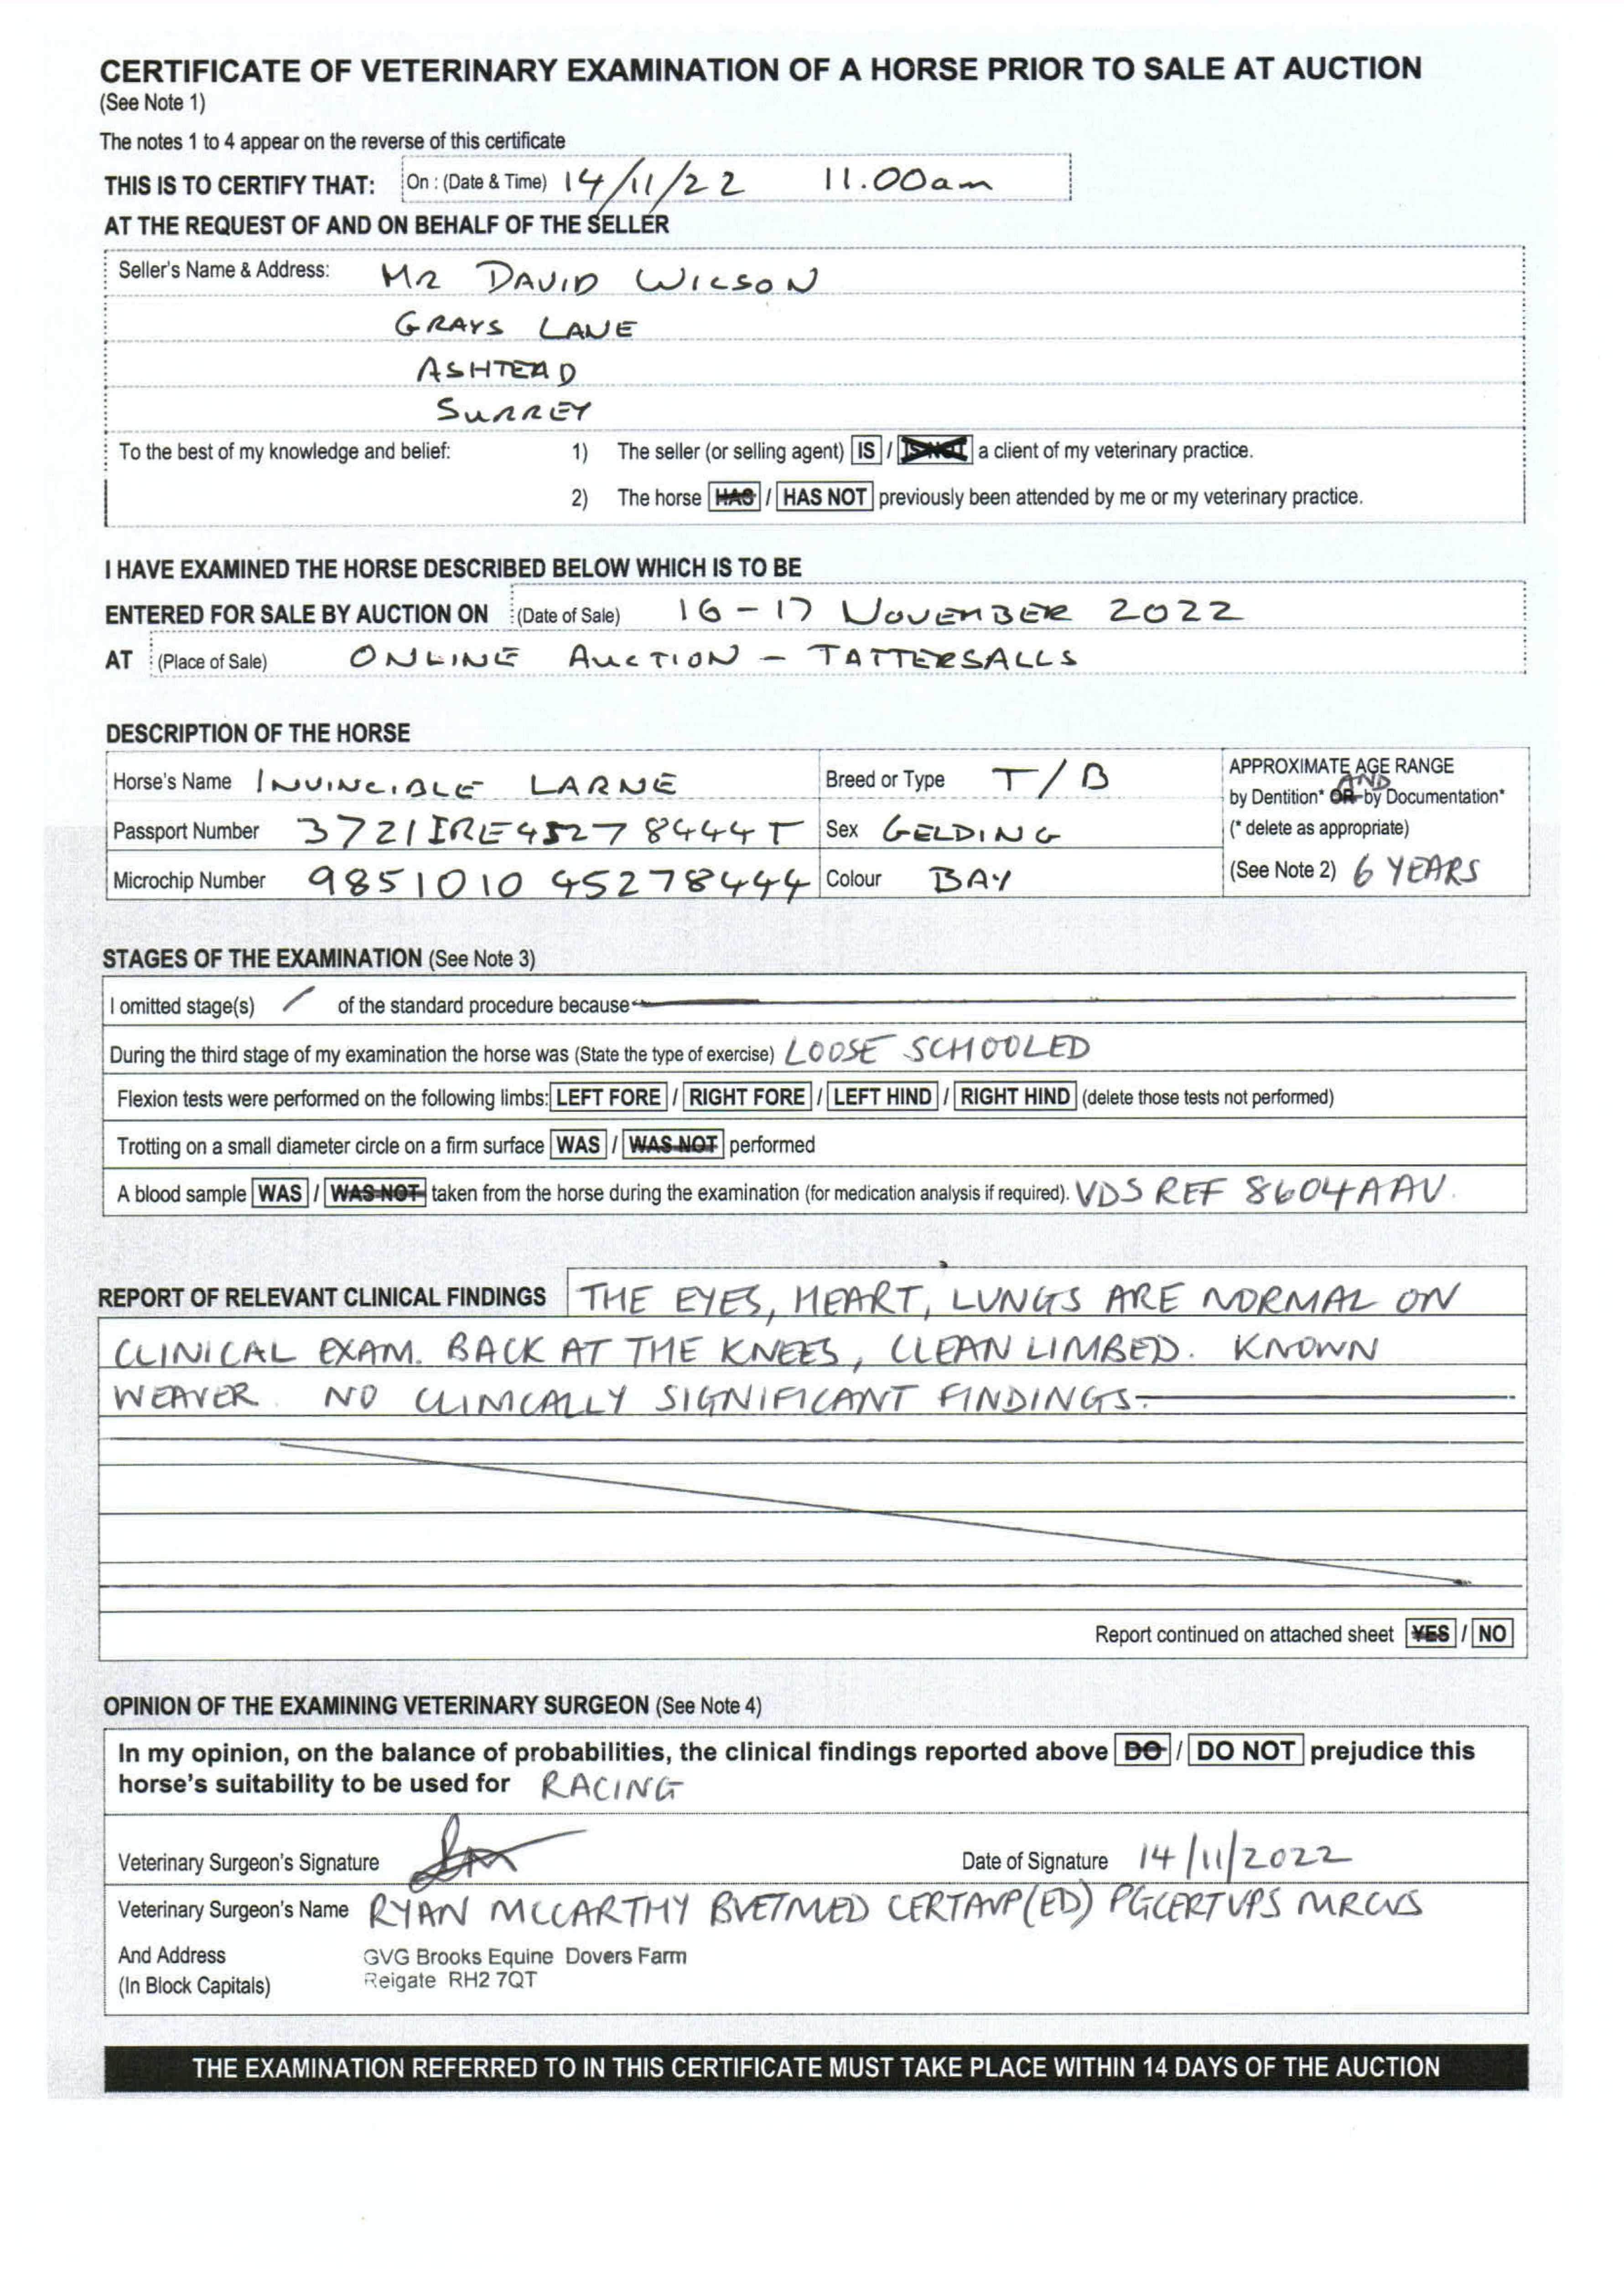 CERTIFICATE OF VETERINARY EXAMINATION OF A HORSE PRIOR TO SALE AT AUCTION
(See Note 1)
The notes 1 to 4 appear on the reverse of this certificate
THIS IS TO CERTIFY THAT: On : (Date & Time) 14/11/22 11.00am
AT THE REQUEST OF AND ON BEHALF OF THE SELLER
Seller's Name & Address: MR DAVID WILSON
GRAYS LANE
ASHTEAD
SURREY
To the best of my knowledge and belief: 1) The seller (or selling agent) IS / IS NOT a client of my veterinary practice.
2) The horse HAS / HAS NOT previously been attended by me or my veterinary practice.
I HAVE EXAMINED THE HORSE DESCRIBED BELOW WHICH IS TO BE
ENTERED FOR SALE BY AUCTION ON (Date of Sale) 16-17 NOVEMBER 2022
AT (Place of Sale) ONLINE AUCTION - TATTERSALLS
DESCRIPTION OF THE HORSE
Horse's Name INVINCIBLE LARNE Breed or Type T/B APPROXIMATE AGE RANGE
AND
by Dentition* OR by Documentation*
Passport Number 372IIRE45278444T Sex GELDING (* delete as appropriate)
Microchip Number 985101045278444 Colour BAY (See Note 2) 6 YEARS
STAGES OF THE EXAMINATION (See Note 3)
I omitted stage(s) / of the standard procedure because
During the third stage of my examination the horse was (State the type of exercise) LOOSE SCHOOLED
Flexion tests were performed on the following limbs: LEFT FORE / RIGHT FORE / LEFT HIND / RIGHT HIND (delete those tests not performed)
Trotting on a small diameter circle on a firm surface WAS / WAS NOT performed
A blood sample WAS / WAS NOT taken from the horse during the examination (for medication analysis if required). VDS REF 8604AAV.
REPORT OF RELEVANT CLINICAL FINDINGS THE EYES, HEART, LUNGS ARE NORMAL ON
CLINICAL EXAM. BACK AT THE KNEES, CLEAN LIMBED. KNOWN
WEAVER. NO CLINICALLY SIGNIFICANT FINDINGS.
Report continued on attached sheet YES / NO
OPINION OF THE EXAMINING VETERINARY SURGEON (See Note 4)
In my opinion, on the balance of probabilities, the clinical findings reported above DO / DO NOT prejudice this
horse's suitability to be used for RACING
Veterinary Surgeon's Signature Date of Signature 14/11/2022
Veterinary Surgeon's Name RYAN MCCARTHY BVETMED CERTAVP(ED) PGCERTVPS MRCVS
And Address GVG Brooks Equine Dovers Farm
(In Block Capitals) Reigate RH2 7QT
THE EXAMINATION REFERRED TO IN THIS CERTIFICATE MUST TAKE PLACE WITHIN 14 DAYS OF THE AUCTION